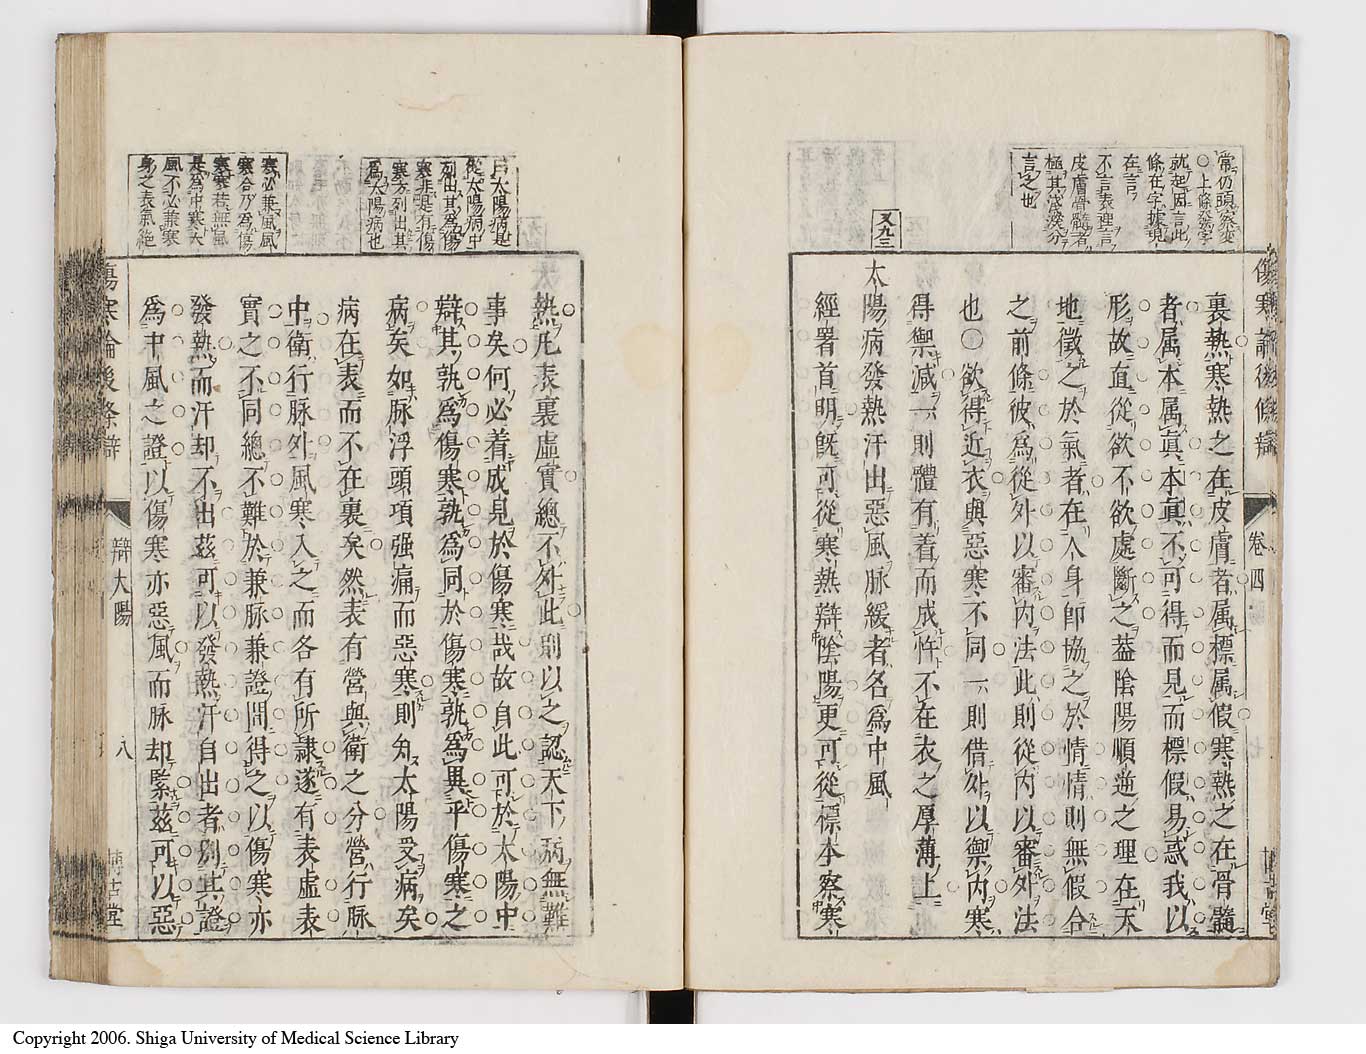 常仍頭
○上條發字
就起因言此
條在字據現
在言
不言表裡言
皮膚骨髓者
極其淺深分
言之也
傷寒論後條辯
卷四
裏熱寒熱之在皮膚者属標属假寒熱之在骨髓
者属本属眞本眞不可得而見而標假易惑我以
形故直從欲不欲處斷之葢陰陽順逆之理在天
地徵之於氣者在人身卽協之於情情則無假合
之前條彼爲從外以審内法此則從内以審外法
也○欲得近衣與惡寒不同一則借外以禦内寒
得禦減一則體有着而成忤不在衣之厚薄上
又九三
太陽病發熱汗出惡風脉緩者名爲中風
經署首明旣可從寒熱辯陰陽更可從標本察寒
太陽病是
從太陽病中
列出其爲傷
寒非是有傷
寒方列出其
爲太陽病也
寒必兼風風
寒合乃爲傷
寒寒若無風
是爲中寒矣
風不必兼寒
身之表氣絶
熱凡表裏虛實總不外此則以之認天下病無難
事矣何必着成見於傷寒哉故自此可於太陽中
辯其孰爲傷寒孰爲同於傷寒孰爲異乎傷寒之
病矣如脉浮頭項强痛而惡寒則知太陽受病矣
病在表而不在裏矣然表有營與衛之分營行脉
中衛行脉外風寒入之而各有所隷遂有表虛表
實之不同總不難於兼脉兼證間得之以傷寒亦
發熱而汗却不出茲可以發熱汗自出者别其證
爲中風之證以傷寒亦惡風而脉却緊茲可以惡
傷寒論後條辯
辯太陽
八
博古堂
Copyright 2006. Shiga University of Medical Science Library